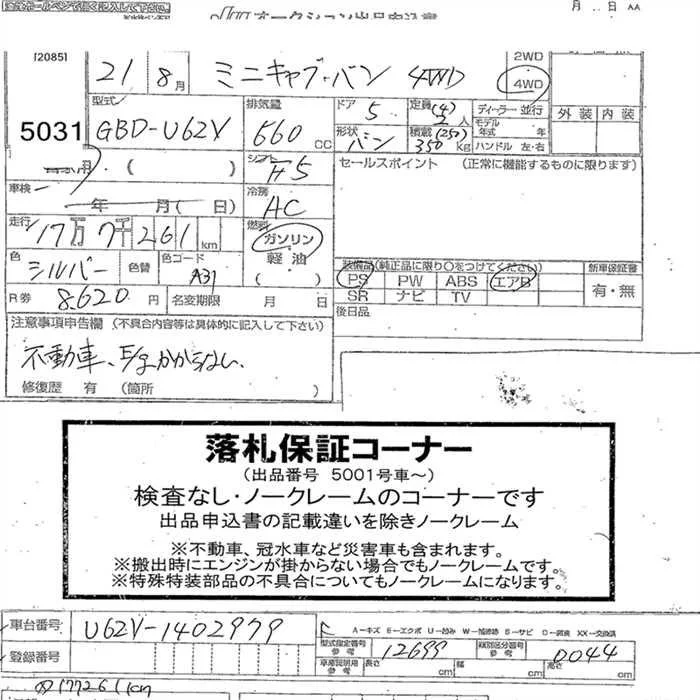 オークション出品申込書
月 日
120851
5031
21 8月 ミニキャブ・バン 4WD
2WD
4WD
型式 GBD-U62V
排気量 660 CC
ドア 5
定員(4) 2人
ディーラー 並行
モデル年式 年
外装 内装
形状 バン
積載(250) 350kg
ハンドル 左・右
自家用 ( )
シフト F5
セールスポイント (正常に機能するものに限ります)
車検 年 月( 日)
冷房 AC
走行 17万7千261km
燃料 ガソリン
軽油
( )
色 シルバー 色替 色コード A31
装備品(純正品に限り○をつけてください)
新車保証書
PS PW ABS エアB
有・無
SR ナビ TV
R券 8620円 名変期限 月 日
後日品
注意事項申告欄 (不具合内容等は具体的に記入して下さい)
不動車、E/gかからない、
修復歴 有 (箇所 )
落札保証コーナー
(出品番号 5001号車～)
検査なし・ノークレームのコーナーです
出品申込書の記載違いを除きノークレーム
※不動車、冠水車など災害車も含まれます。
※搬出時にエンジンが掛からない場合でもノークレームです。
※特殊特装部品の不具合についてもノークレームになります。
車台番号 U62V-1402979
A-キズ E-エクボ U-凹み W-補修跡 S-サビ C-腐食 XX-交換済
型式指定番号 参考 12699
類別区分番号 参考 0044
登録番号
車庫証明用 参考 長さ cm 幅 cm 高さ cm
177261km